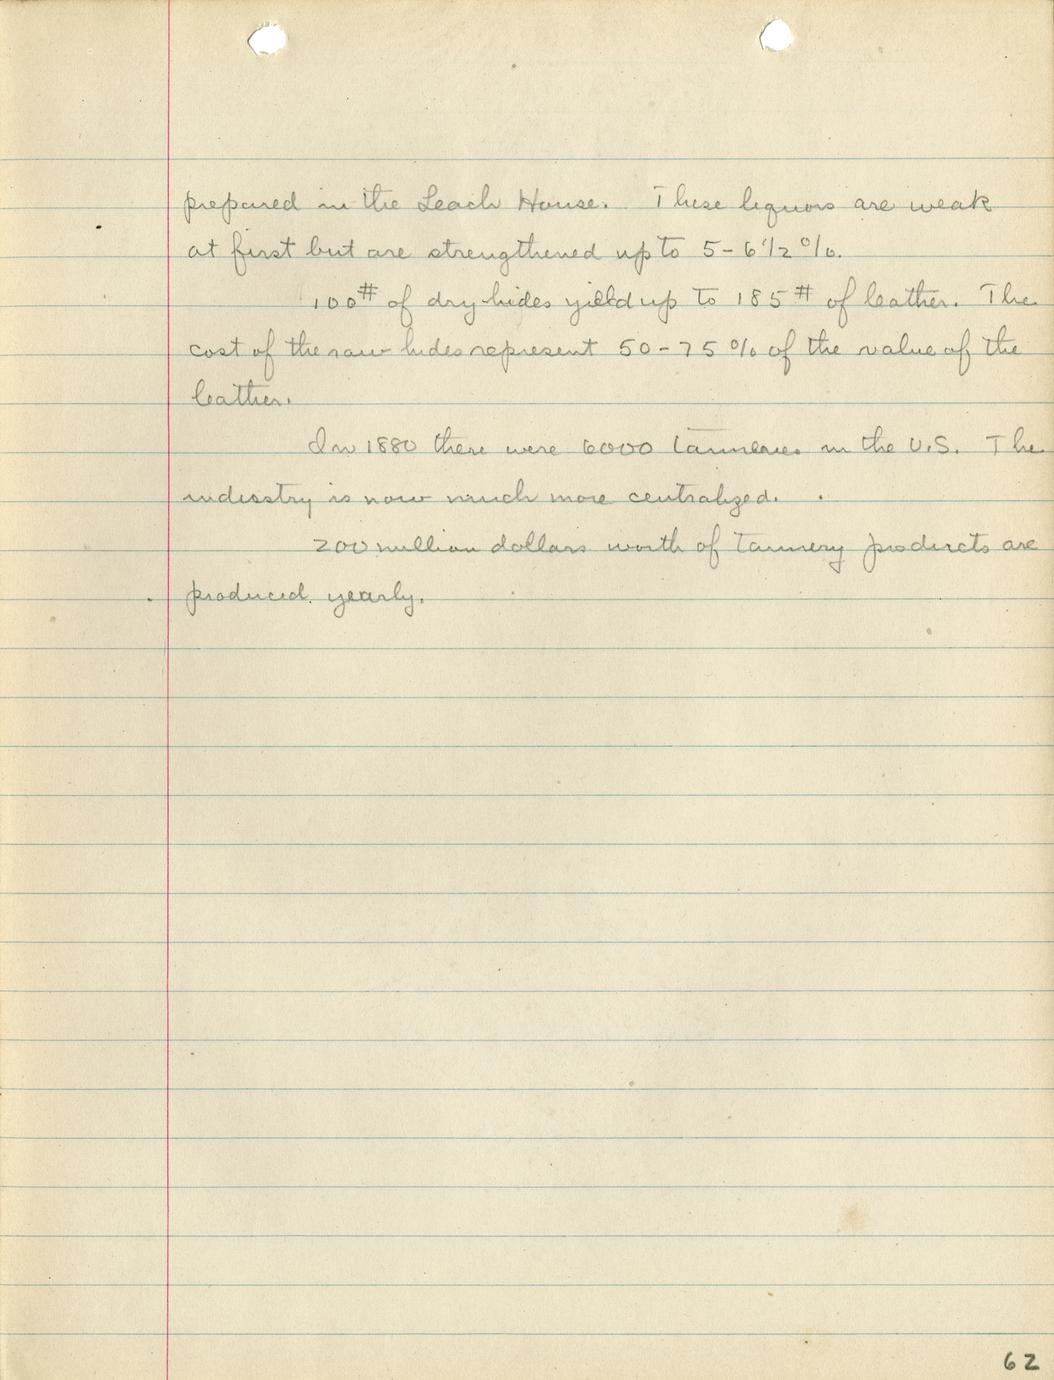 prepared in the Leach House. These liquors are weak
at first but are strengthened up to 5-6 1/2 %.
100# of dry hides yield up to 185# of leather. The
cost of the raw hides represent 50-75% of the value of the
leather.
In 1880 there were 6000 tanneries in the U.S. The
industry is now much more centralized.
200 million dollars worth of tannery products are
produced yearly.
62